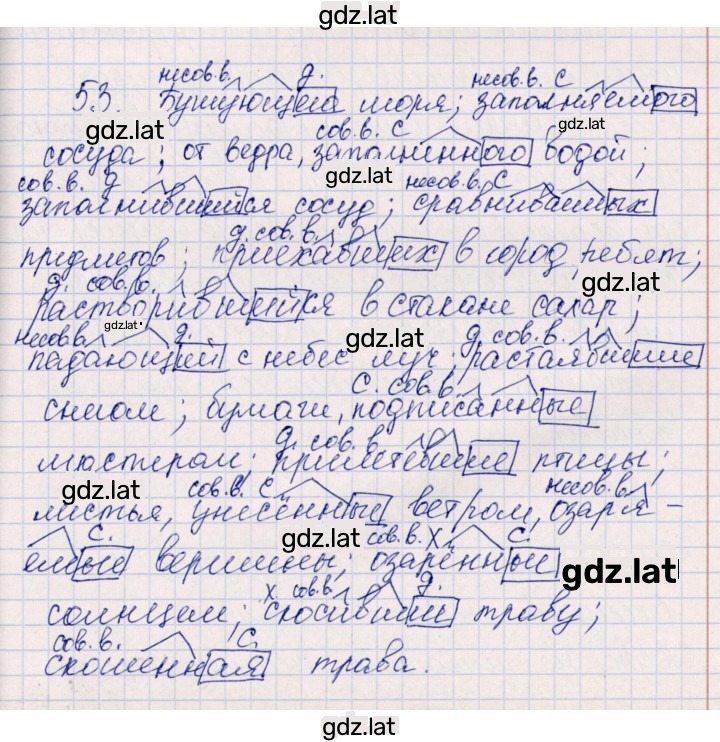 gdz.lat
несов.в. д. несов.в. с
53. Бушующего моря; заполняемого
gdz.lat сов.в. с gdz.lat
сосуда; от ведра, заполненного водой;
сов.в. д gdz.lat несов.в. с
заполнившийся сосуд; сравниваемых
д. сов.в.
предметов; приехавших в город ребят;
д. сов.в. gdz.lat
растворившийся в стакане сахар;
несов в. gdz.lat д. gdz.lat д сов.в.
падающий с небес луч; растаявшие
с. сов.в.
снегом; бумаги, подписанные
gdz.lat д. сов.в
мастером; прилетевшие птицы;
gdz.lat сов.в. с несов.в.
листья, унесённые ветром, озаря-
с. gdz.lat сов.в. х с.
емые вершины; озарённые gdz.lat
х. сов.в д.
солнцем; скосившие траву;
сов.в. с.
скошенная трава.
gdz.lat